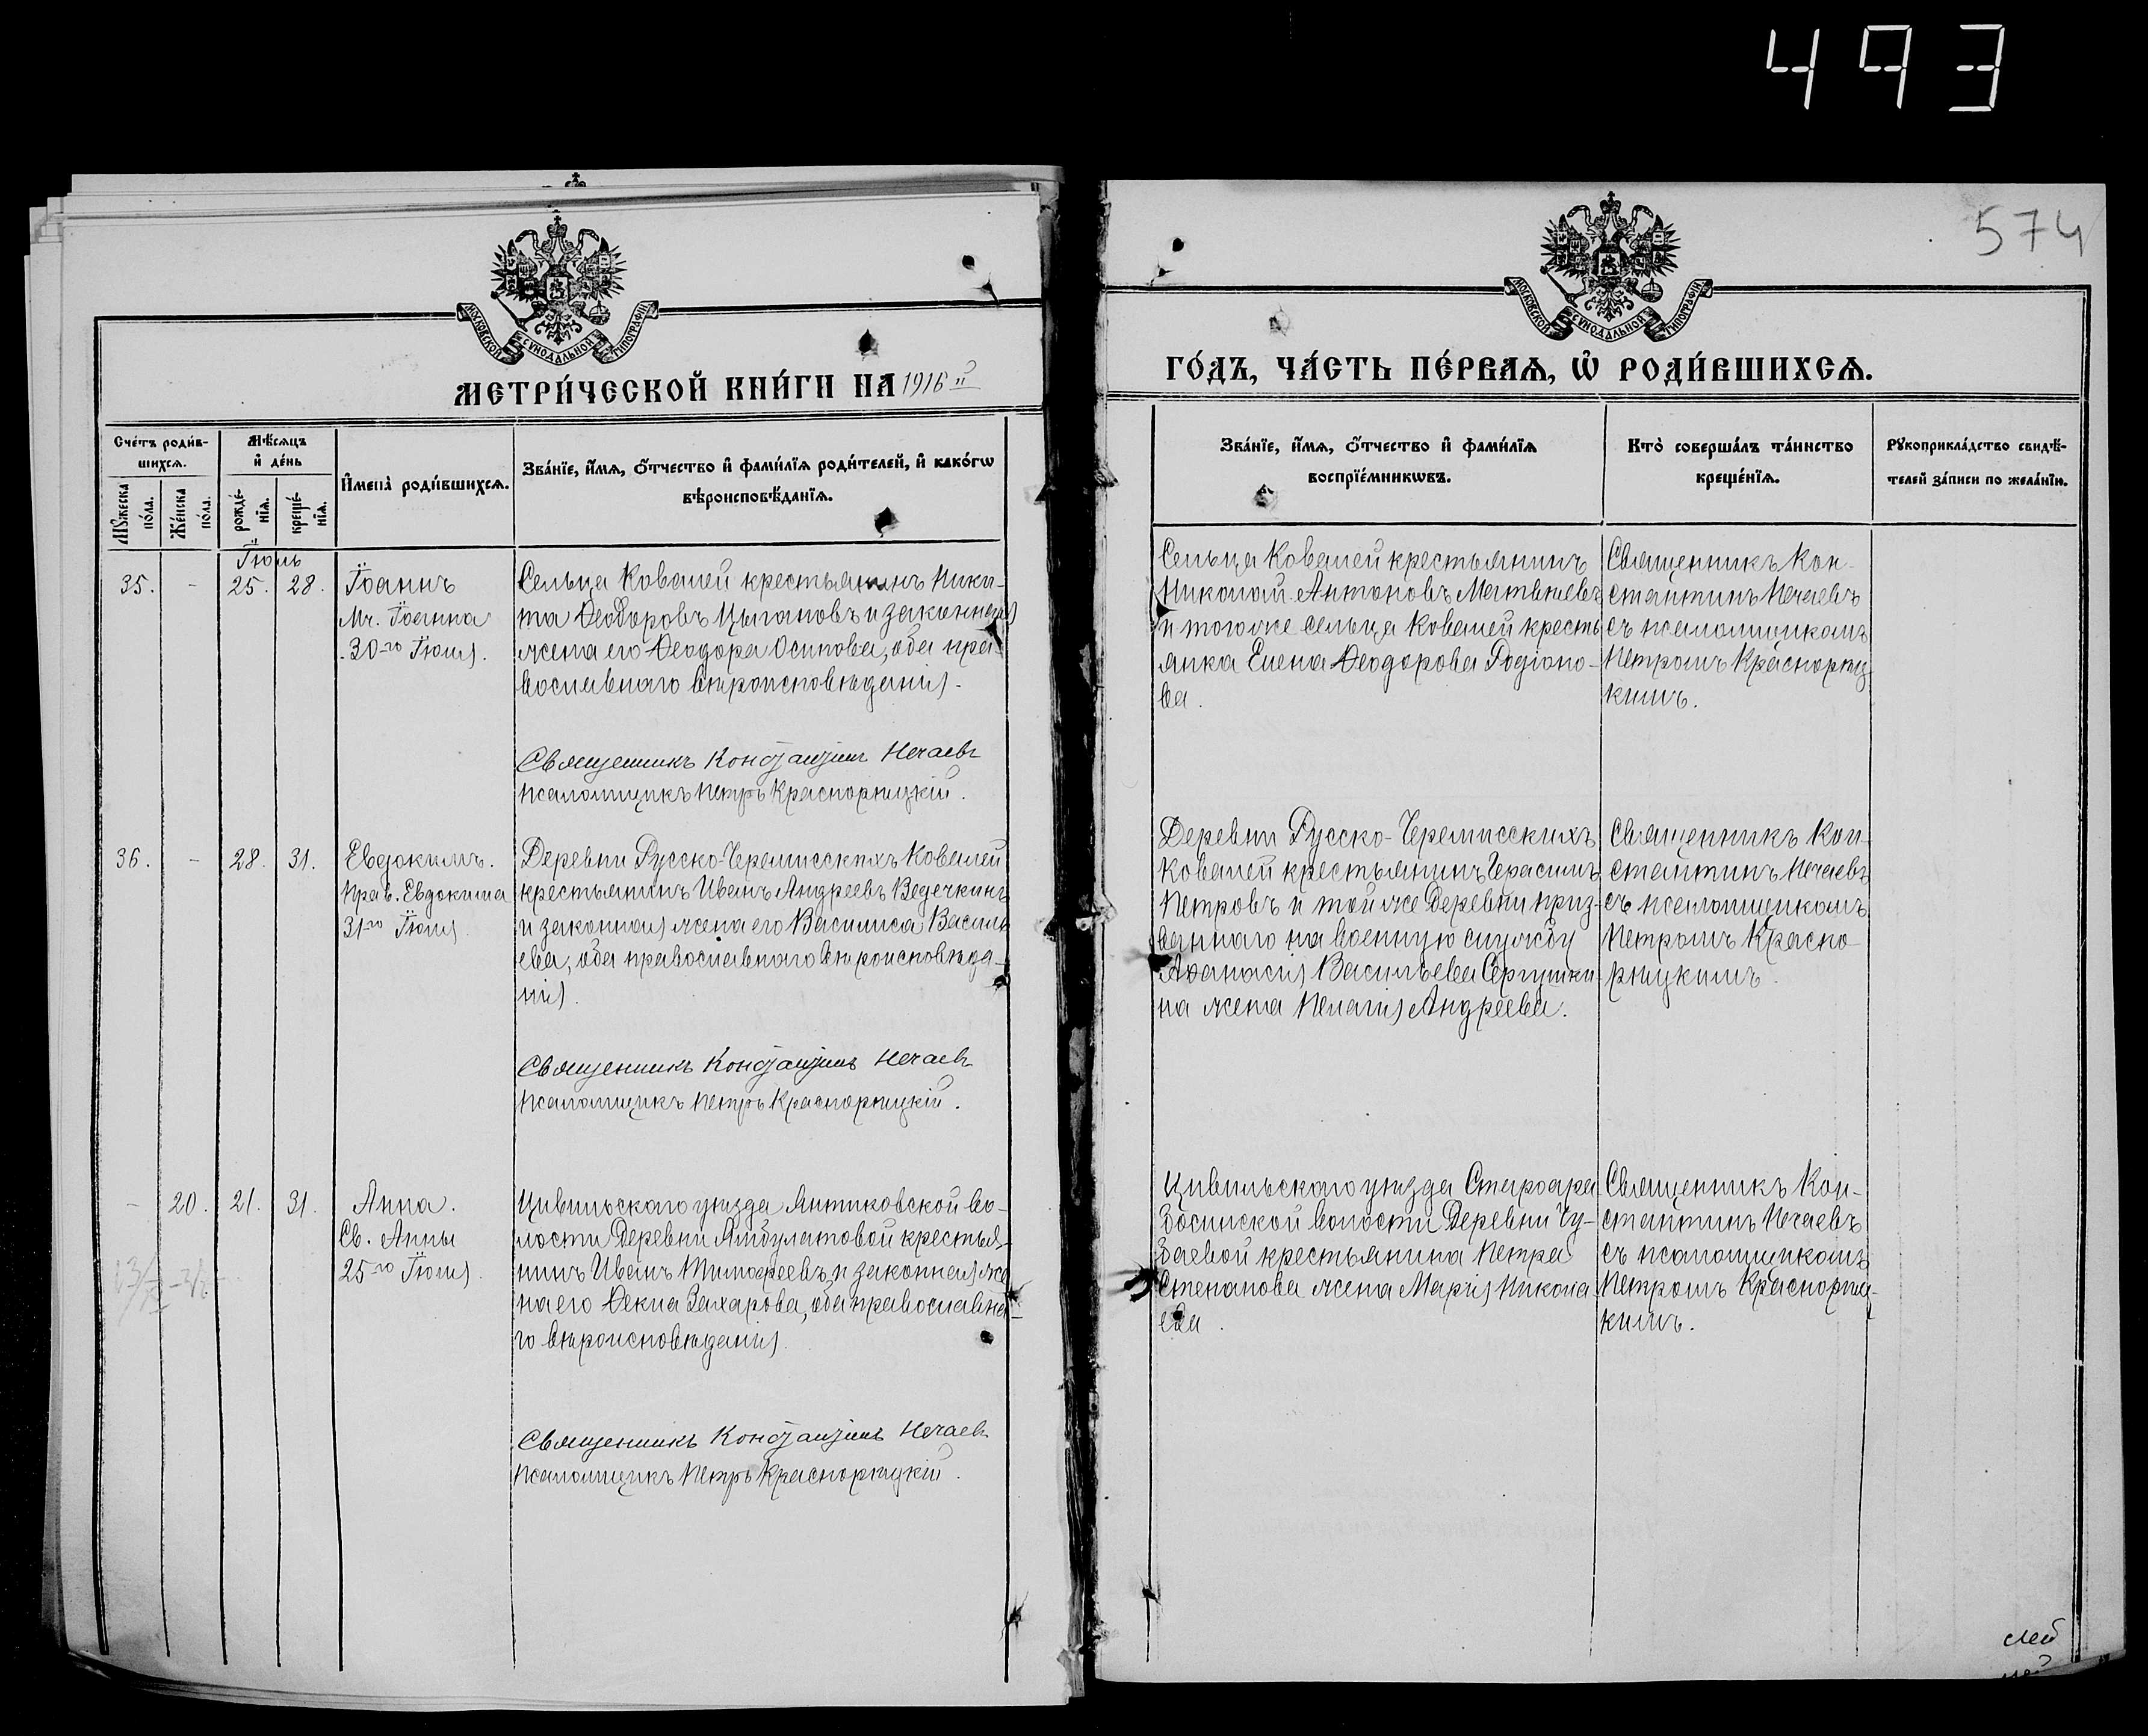 493
574
МОСКОВСКОЙ СѴНОДАЛЬНОЙ ТИПОГРАФІИ
МОСКОВСКОЙ СѴНОДАЛЬНОЙ ТИПОГРАФІИ
МЕТРИ́ЧЕСКОЙ КНИ́ГИ НА 1916 й
ГО́ДЪ, ЧА́СТЬ ПЕ́РВАѦ, Ѡ҆ РОДИ́ВШИХСѦ.
Сче́тъ роди́в-
шихсѧ.
Мꙋжеска по́ла.
Же́нска по́ла.
Мѣ́сѧцъ
и҆ де́нь
рожде́-
нїѧ.
креще́-
нїѧ.
И҆мена̀ роди́вшихсѧ.
Зва́нїе, и҆́мѧ, ѻ҆́тчество и҆ фами́лїѧ роди́телей, и҆ како́гѡ
вѣроисповѣ́данїѧ.
Зва́нїе, и҆́мѧ, ѻ҆́тчество и҆ фами́лїѧ
воспрїе́мникѡвъ.
Кто̀ соверша́лъ та́инство
креще́нїѧ.
Рꙋкоприкла́дство свидѣ́-
телей за́писи по жела́нїю.
Іюль
35. - 25. 28.
Іоаннъ
Мч. Іоанна
30го Іюня.
Сельца Ковалей крестьянинъ Ники-
та Ѳеодоровъ Цыгановъ и законная
жена его Ѳеодора Осипова, оба пра-
вославнаго вѣроисповѣданія.
Священникъ Константинъ Нечаевъ
Псаломщикъ Петръ Краснорѣцкій.
Сельца Ковалей крестьянинъ
Николай Антоновъ Матвѣевъ
и того же сельца Ковалей кресть
янка Елена Ѳеодорова Родіоно-
ва.
Священникъ Кон-
стантинъ Нечаевъ
съ псаломщикомъ
Петромъ Краснорѣц
кимъ.
36. - 28. 31.
Евдокимъ.
Прав. Евдокима
31го Іюля
Деревни Русско-Черемисскихъ Ковалей
крестьянинъ Иванъ Андреевъ Ведечкинъ
и законная жена его Василиса Василь
ева, оба православнаго вѣроисповѣда-
нія.
Священникъ Константинъ Нечаевъ
Псаломщикъ Петръ Краснорѣцкій.
Деревни Русско-Черемисскихъ
Ковалей крестьянинъ Герасимъ
Петровъ и той же деревни приз-
ваннаго на военную службу
Аѳанасія Васильева Сергушки-
на жена Пелагія Андреева.
Священникъ Кон-
стантинъ Нечаевъ
съ псаломщикомъ
Петромъ Красно-
рѣцкимъ.
- 20. 21. 31.
Анна.
Св. Анны
25го Іюля.
Цивильскаго уѣзда Янтиковской во-
лости деревни Ямбулатовой крестья-
нинъ Иванъ Тимоѳеевъ и законная же
на его Ѳекла Захарова, оба православна-
го вѣроисповѣданія.
Священникъ Константинъ Нечаевъ
Псаломщикъ Петръ Краснорѣцкій.
Цивильскаго уѣзда Староара
босинской волости деревни Чу-
баевой крестьянина Петра
Степанова жена Марія Никола
ева.
Священникъ Кон-
стантинъ Нечаевъ
съ псаломщикомъ
Петромъ Краснорѣц-
кимъ.